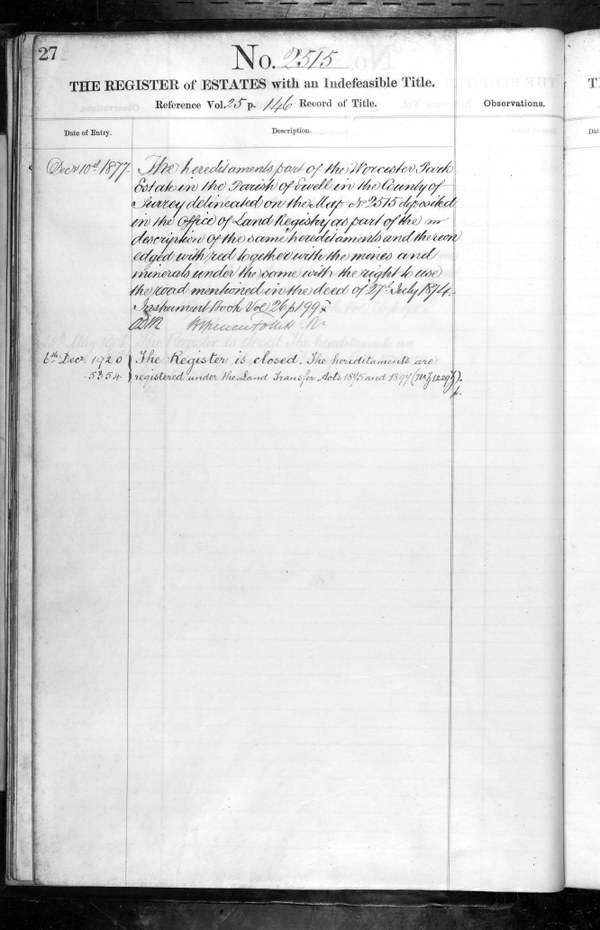 27
No. 2515
THE REGISTER of ESTATES with an Indefeasible Title.
Reference Vol. 25 p. 146 Record of Title.
Observations.
Date of Entry.
Description.
Decr 10th 1877.
The hereditaments part of the Worcester Park
Estate in the Parish of Ewell in the County of
Surrey delineated on the Map No 2515 deposited
in the Office of Land Registry as part of the
description of the same hereditaments and thereon
edged with red together with the mines and
minerals under the same with the right to use
the road mentioned in the deed of 27th July 1874.
Instrument Book Vol 26 p 199
6th Decr 1920
5354
The Register is closed. The hereditaments are
registered under the Land Transfer Acts 1875 and 1897